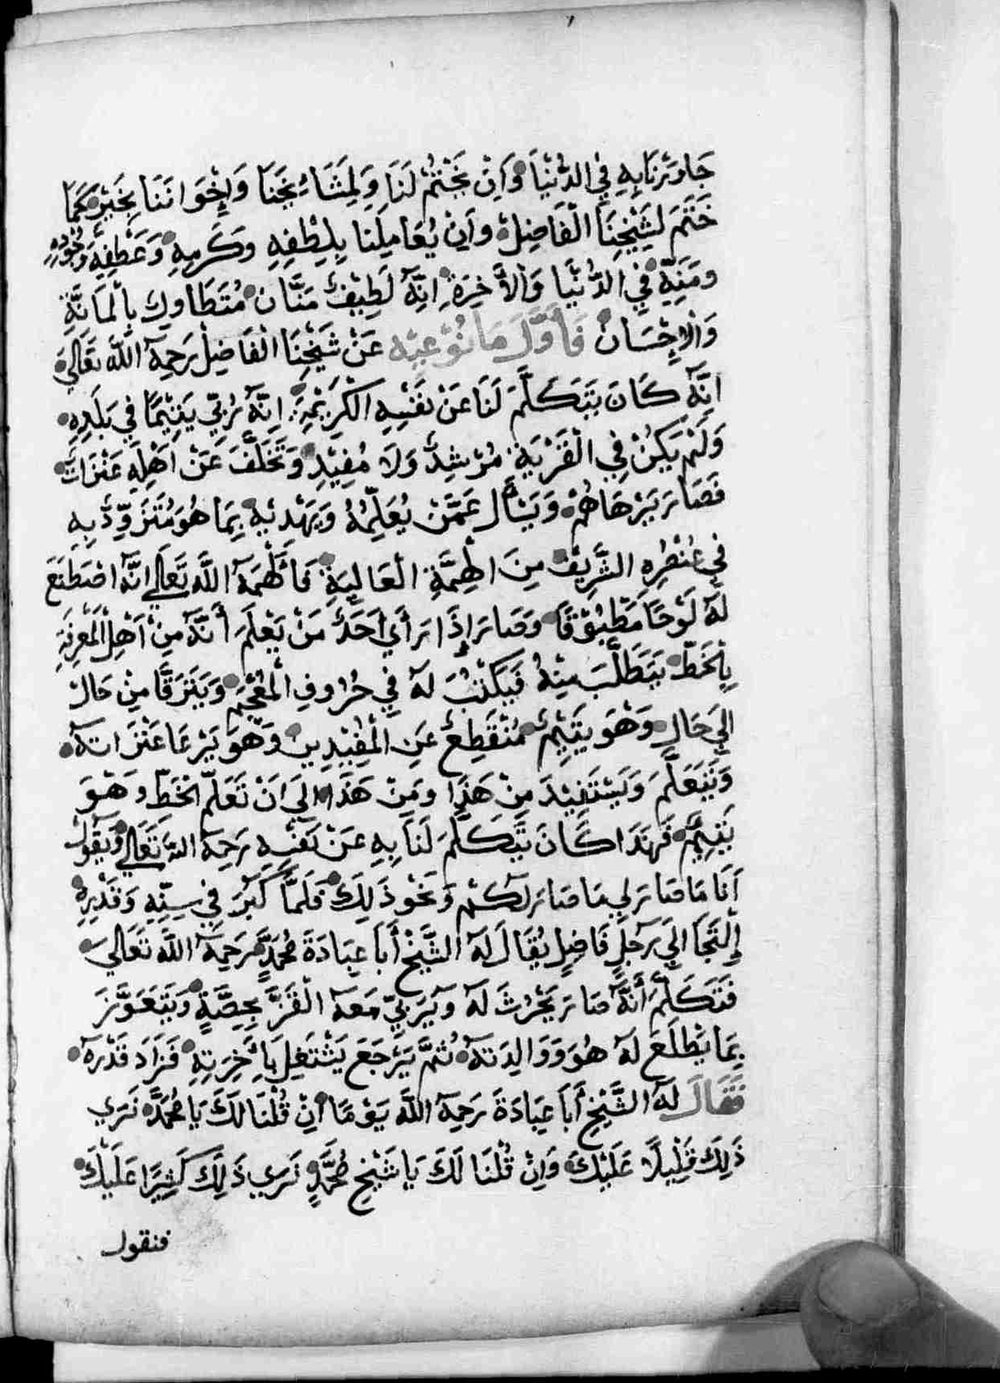 جَاوَرْنَا بِهِ فِي الدُّنْيَا وَاَنْ يَخْتُمْ لَنَا وَلِمَشَائِخِنَا وَلِاِخْوَانِنَا بِخَيْرٍ كَمَا
خَتَمَ لِشَيْخِنَا الْفَاضِلْ وَاَنْ يُعَامِلَنَا بِلُطْفِهِ وَكَرَمِهِ وَعَطْفِهِ وَجُوْدِهِ
وَمَنِّهِ فِي الدُّنْيَا وَالْاَخِرَةْ اِنَّهُ لَطِيْفٌ مَنَّانْ مُتَطَاوِلْ بِالْمَانَّةِ
وَالْاِحْسَانْ فَأَوَّلَ مَا نُوْعِيْهِ عَنْ شَيْخِنَا الْفَاضِلْ رَحِمَهُ اللّٰه تَعَالَى
اِنَّهُ كَانَ يَتَكَلَّمَ لَنَا عَنْ نَفْسِهِ الْكَرِيْمَةِ اِنَّهُ تْرَبِّى يَتِيْمًا فِي بَلَدِهِ
وَلَمْ يَكُنْ فِي الْقَرْيَةِ مُرْشِدٌ وَلَا مُفِيْدٍ وَتَخَلَّفَ عَنْ اَهْلِهِ عَنْزَاتْ
فَصَارَ يَرْعَاهُمْ وَيَسْأَل عَمَّنْ يُعَلِّمُهُ وَيَهْدِيْهِ بِمَا هُوَ مُتَزَوِّدٌ بِهِ
فِي عُنْصُرِهِ الشَّرِيْفْ مِنَ الْهِمَّةِ الْعَالِيَةِ فَأَلْهَمَهُ اللَّه تَعَالَى اِنَّهُ اصْطَنَعَ
لَهُ لَوْحًا مَطْبُوْقًا وَصَارَ اِذَا رَأَى اَحَدٌ مَنْ يَعْلَمَ أَنَّهُ مِنْ اَهْلِ الْمَعْرِفَةِ
بِالْخَطّ يَتَطَلَّبَ مِنْهُ فَيَكْتُبَ لَهُ فِي حُرُوفِ الْمُعْجَمِ وَيَتَرَقَّا مِنْ حَالْ
اِلَى حَالِ وَهْوَ يَتِيْمٌ مُنْقَطِعٌ عَنِ الْمُفِيْدِينْ وَهْوَ يَرْعَا عَنْزَاتَهُ
وَيَتَعَلَّمَ وَيَسْتَفِيْدَ مِنْ هَذَا وَمِنْ هَذَا اِلَى اَنْ تَعَلَّمَ الْخَطّ وَهْوَ
يَتِيْمٌ فَهَذَا كَانَ يَتَكَلَّمَ لَنَا بِهِ عَنْ نَفْسِهِ رَحِمَهُ اللّٰه تَعَالَى وَيَقُولْ
اَنَا مَا صَارَ لِي مَا صَارَ لَكُمْ وَنَحْوِ ذَلِكَ فَلَمَّا كَبُرَ فِي سِنِّهِ وَقَدْرِهِ
اِلْتَجَا اِلَى رَجُلٍ فَاضِلٍ يُقَالَ لَهُ الشَّيْخُ أَبَا عِبَادَةَ مُحَمَّدٍ رَحِمَهُ اللَّه تَعَالَى
فَتَكَلَّمَ أَنَّهُ صَارَ يَحْرُثَ لَهُ وَيُرَبِّي مَعَهُ الْقَزّ بِحِصَّةٍ وَيَتَعَوَّزَ
بِمَا يَطْلَعَ لَهُ هُوَ وَوَالِدَتَهُ ثُمَّ يَرْجَعَ يَشْتَغِلْ بِآخِرَتِهِ فَزَادَ قَدْرَهُ
فَقَالَ لَهُ الشَّيْخِ أَبَا عِبَادَةَ رَحِمَهُ اللَّه يَوْمًا اِنْ قُلْنَا لَكَ يَا مُحَمَّدْ نَرَى
ذَلِكَ قَلِيْلًا عَلَيْكَ وَاِنْ قُلْنَا لَكَ يَا شَيْخِ مُحَمَّدٍ نَرَى ذَلِكَ كَثِيْرًا عَلَيْكَ
فنقول